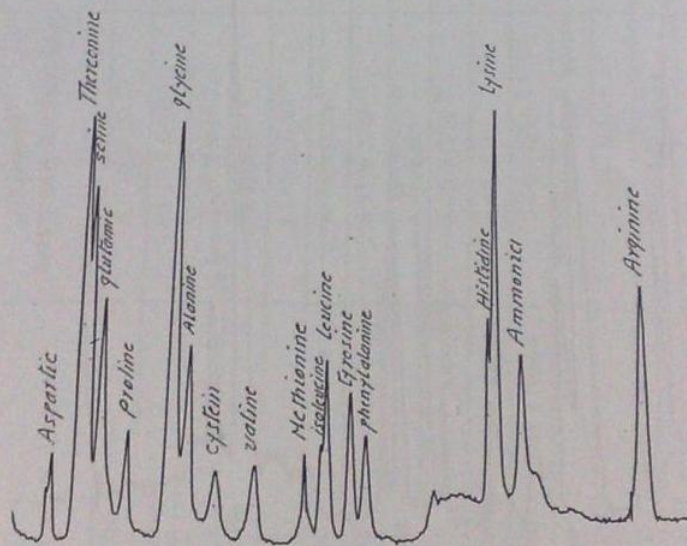 Aspartic
Threonine
serine
glutamic
proline
glycine
Alanine
cystein
valine
Methionine
isoleucine
Leucine
tyrosine
phenylalanine
Histidine
Lysine
Ammonia
Arginine